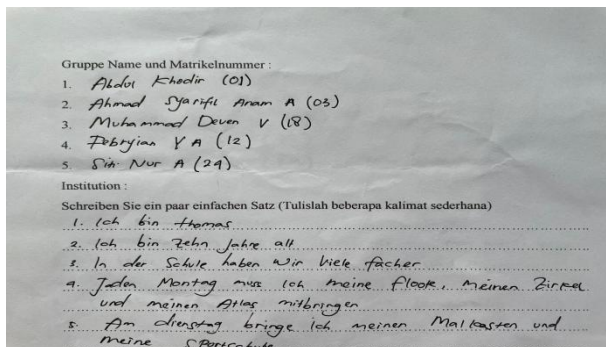 Gruppe Name und Matrikelnummer :
1. Abdul Khodir (01)
2. Ahmad Syarifil Anam A (03)
3. Muhammad Deven V (18)
4. Febryian Y A (12)
5. Siti Nur A (24)
Institution :
Schreiben Sie ein paar einfachen Satz (Tulislah beberapa kalimat sederhana)
1. Ich bin thomas
2. Ich bin zehn Jahre alt
3. In der Schule haben wir viele fächer
4. Jeden Montag muss ich meine flöte, meinen Zirkel
und meinen Atlas mitbringen
5. Am dienstag bringe ich meinen Malkasten und
meine